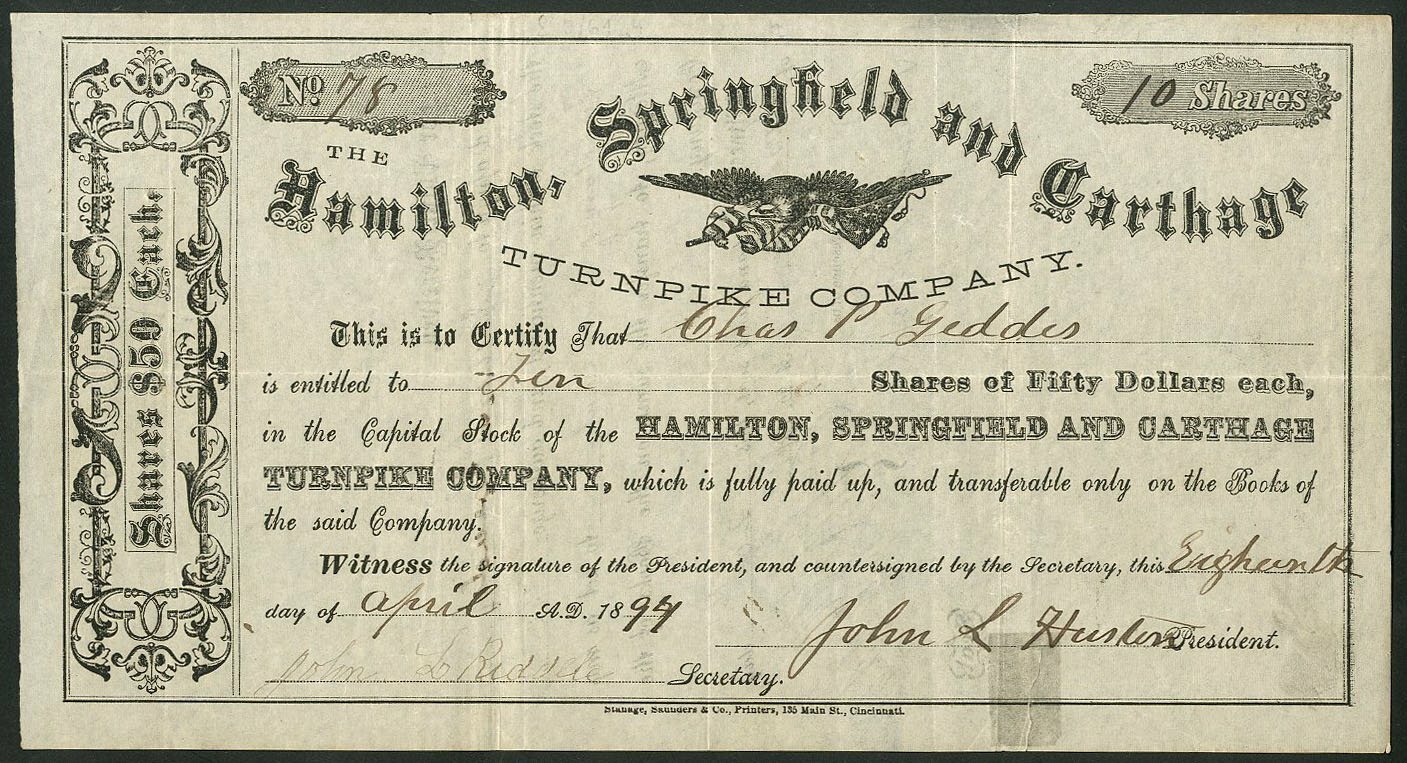 No. 78
10 Shares
THE
Hamilton, Springfield and Carthage
TURNPIKE COMPANY.
Shares $50 Each.
This is to Certify That Chas P Geddes
is entitled to Ten Shares of Fifty Dollars each,
in the Capital Stock of the HAMILTON, SPRINGFIELD AND CARTHAGE
TURNPIKE COMPANY, which is fully paid up, and transferable only on the Books of
the said Company.
Witness the signature of the President, and countersigned by the Secretary, this
day of April A.D. 1894
John L Huston President.
John L Riddle Secretary.
Stanage, Saunders & Co., Printers, 135 Main St., Cincinnati.